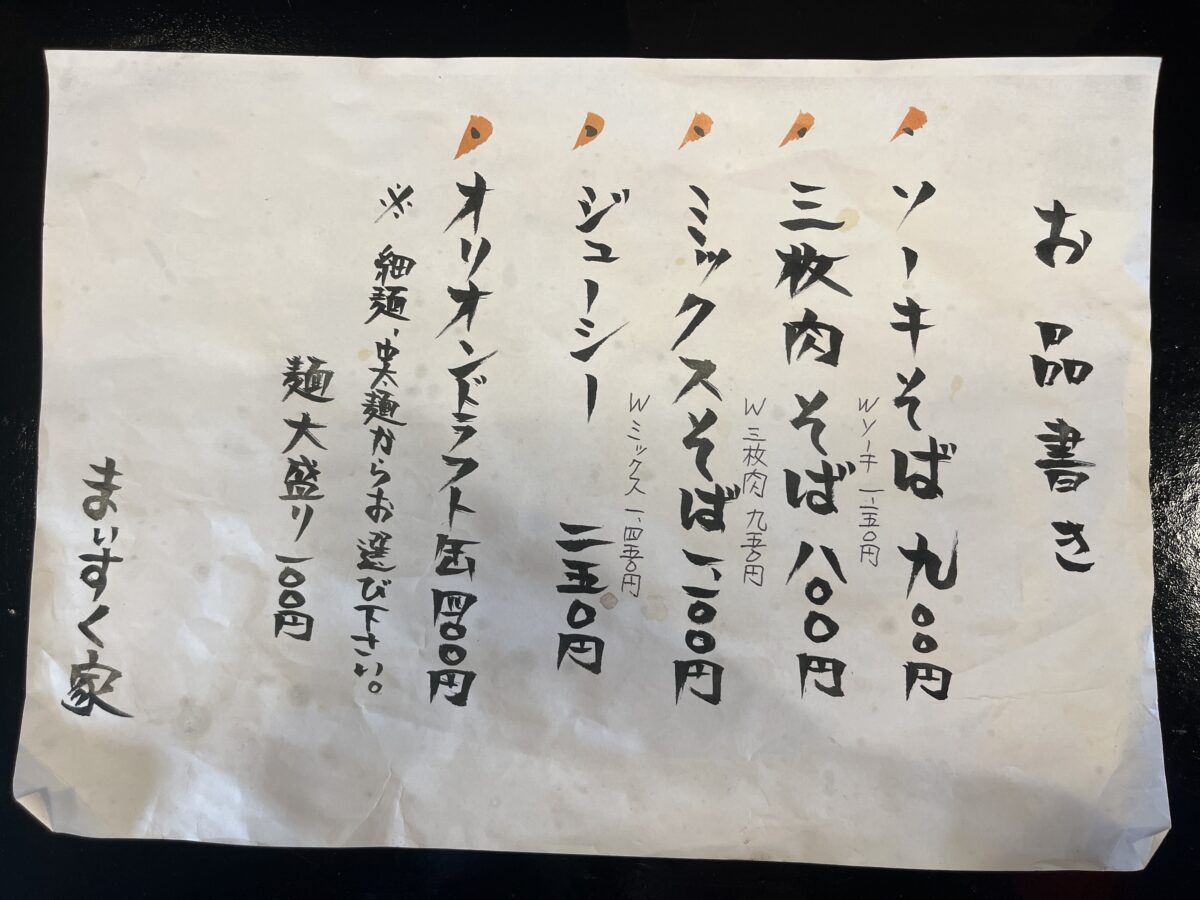 お品書き
ソーキそば 九〇〇円
Wソーキ
三枚肉そば 八〇〇円
W三枚肉 九五〇円
ミックスそば 一、一〇〇円
Wミックス 一、四五〇円
ジューシー 二五〇円
オリオンドラフト缶 四〇〇円
※ 細麺、中太麺からお選び下さい。
麺大盛り 一〇〇円
まいすく家